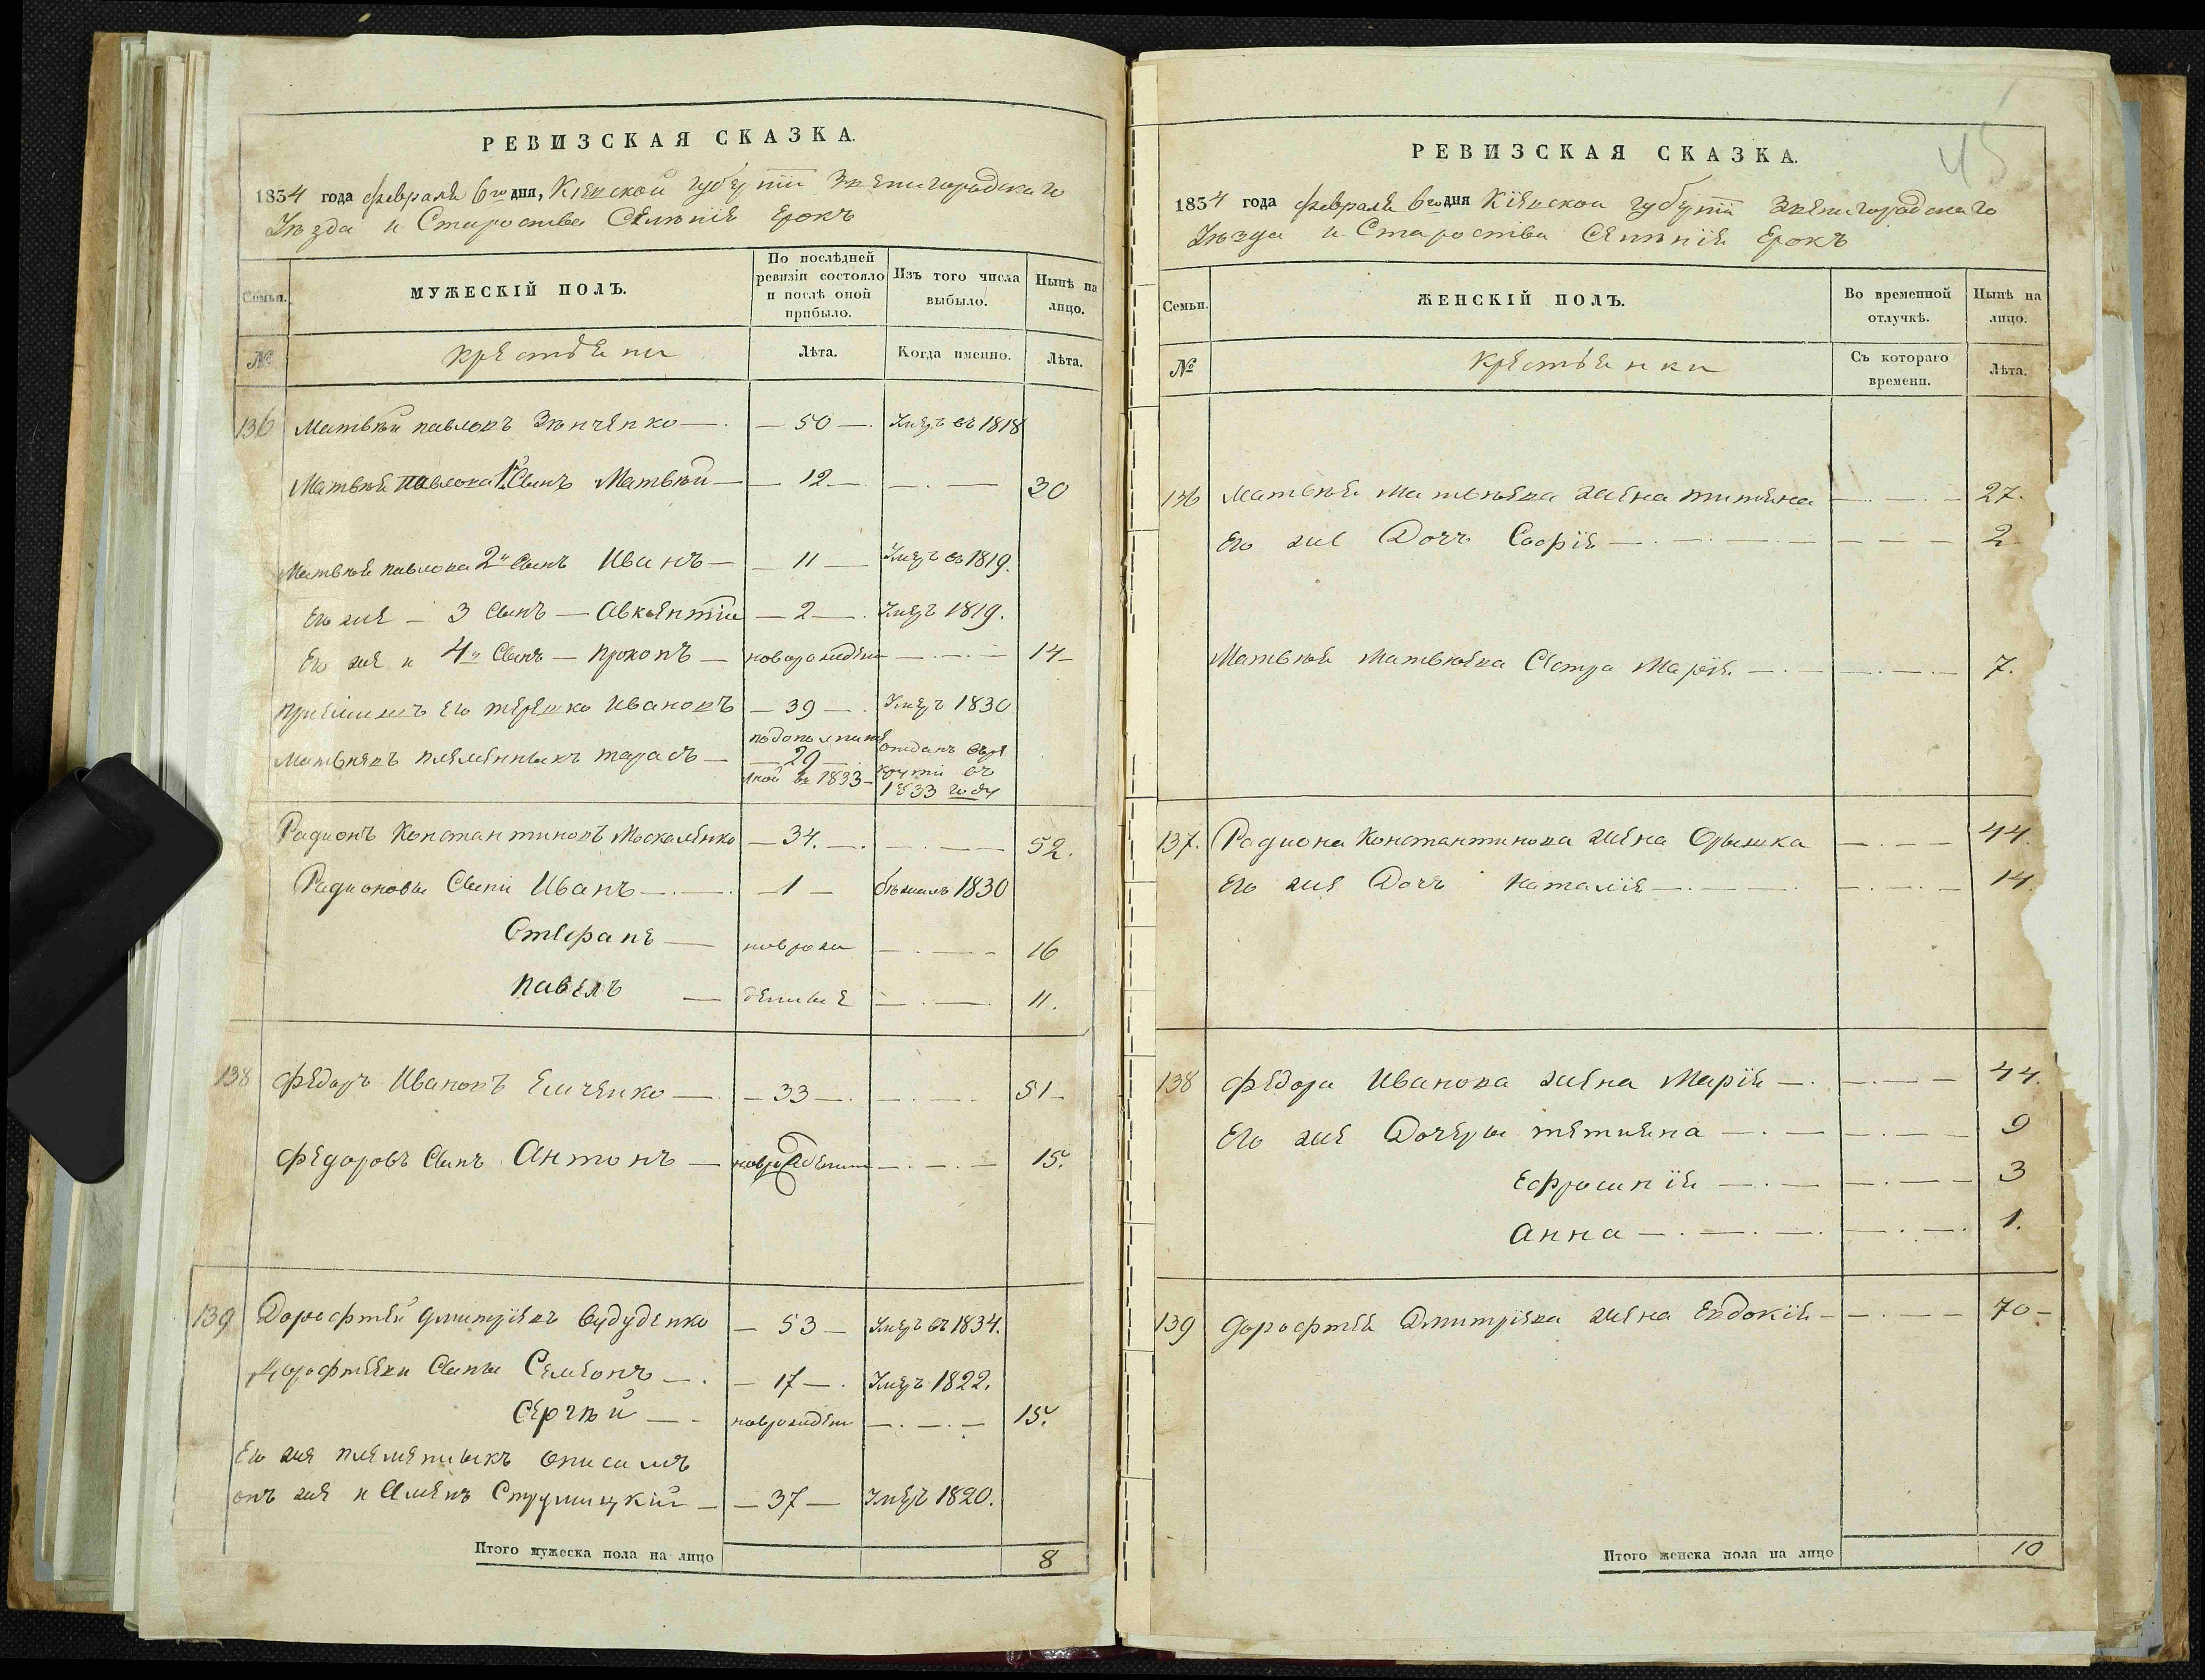 РЕВИЗСКАЯ СКАЗКА.
1834 года февраля 6го дня, Кіевской губерніи Звенигородскаго
Уезда и Староства Селенія Ерокъ
Семьи.
МУЖЕСКІЙ ПОЛЪ.
По послѣдней ревизіи состояло и послѣ оной прибыло.
Изъ того числа выбыло.
Нынѣ на лицо.
№
крестьяни
Лѣта.
Когда именно.
Лѣта.
136 Матвѣй павловъ Зѣнченко — 50 — Умеръ въ 1818
Матвѣя павлова 1й Сынъ Матвѣй — 12 — 30
Матвѣя павлова 2й Сынъ Иванъ — 11 — Умеръ въ 1819.
Его же — 3 Сынъ — Авксентій — 2 — Умеръ 1819.
Его же и 4й Сынъ — Прокопъ — новорожденъ — 14
приемишъ его терешко Ивановъ — 39 — Умеръ 1830
Матвѣевъ племянныкъ тарасъ — 29 — отданъ въ ре
крути въ
1833 году
Радионъ Константиновъ Москаленко — 34. — 52.
Радионовы Сыни Иванъ — 1 — бѣжалъ 1830
Стефанъ — новрож — 16
Павелъ — денные — 11.
138 Федоръ Ивановъ Емченко — 33 — 51
Федоровъ Сынъ Антонъ — новрожденъ — 15.
139 Дорофтей Дмитріевъ Дудченко — 53 — Умеръ въ 1834.
Дорофтеевы Сыны Семеонъ — 17 — Умеръ 1822.
Сергѣй — новрожденъ — 15.
Его же племянныкъ Онисимъ
онъ же и Семенъ — 37 — Умеръ 1820.
Итого мужеска пола на лицо 8
45
РЕВИЗСКАЯ СКАЗКА.
1834 года февраля 6го дня Кіевской губерніи Звенигородскаго
Уезда и Староства Селенія Ерокъ
Семьи.
ЖЕНСКІЙ ПОЛЪ.
Во временной отлучкѣ.
Нынѣ на лицо.
№
Крестьянки
Съ котораго времени.
Лѣта.
136 Матвѣя Матвѣева жена титяна — 27.
Его же Дочъ Софія — 2
Матвѣя Матвѣева Сестра Марія — 7.
137. Радиона Константинова жена Орышка — 44.
Его же Дочъ Наталія — 14.
138 Федора Иванова жена Марія — 44.
Его же Дочеры тетияна — 9
Ефросинія — 3
Анна — 1.
139 Дорофтея Дмитріева жена Евдокія — 70
Итого женска пола на лицо 10